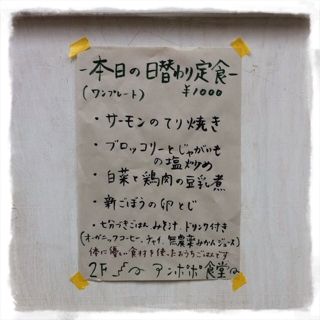 -本日の日替わり定食-
(ワンプレート) ¥1000
・サーモンのてり焼き
・ブロッコリーとじゃがいも
の塩炒め
・白菜と鶏肉の豆乳煮
・新ごぼうの卵とじ
・七分づきごはん みそ汁 ドリンク付き
(オーガニックコーヒー、チャイ、無農薬みかんジュース)
体に優しい食材を使ったおうちごはんです
2F アンポポ食堂